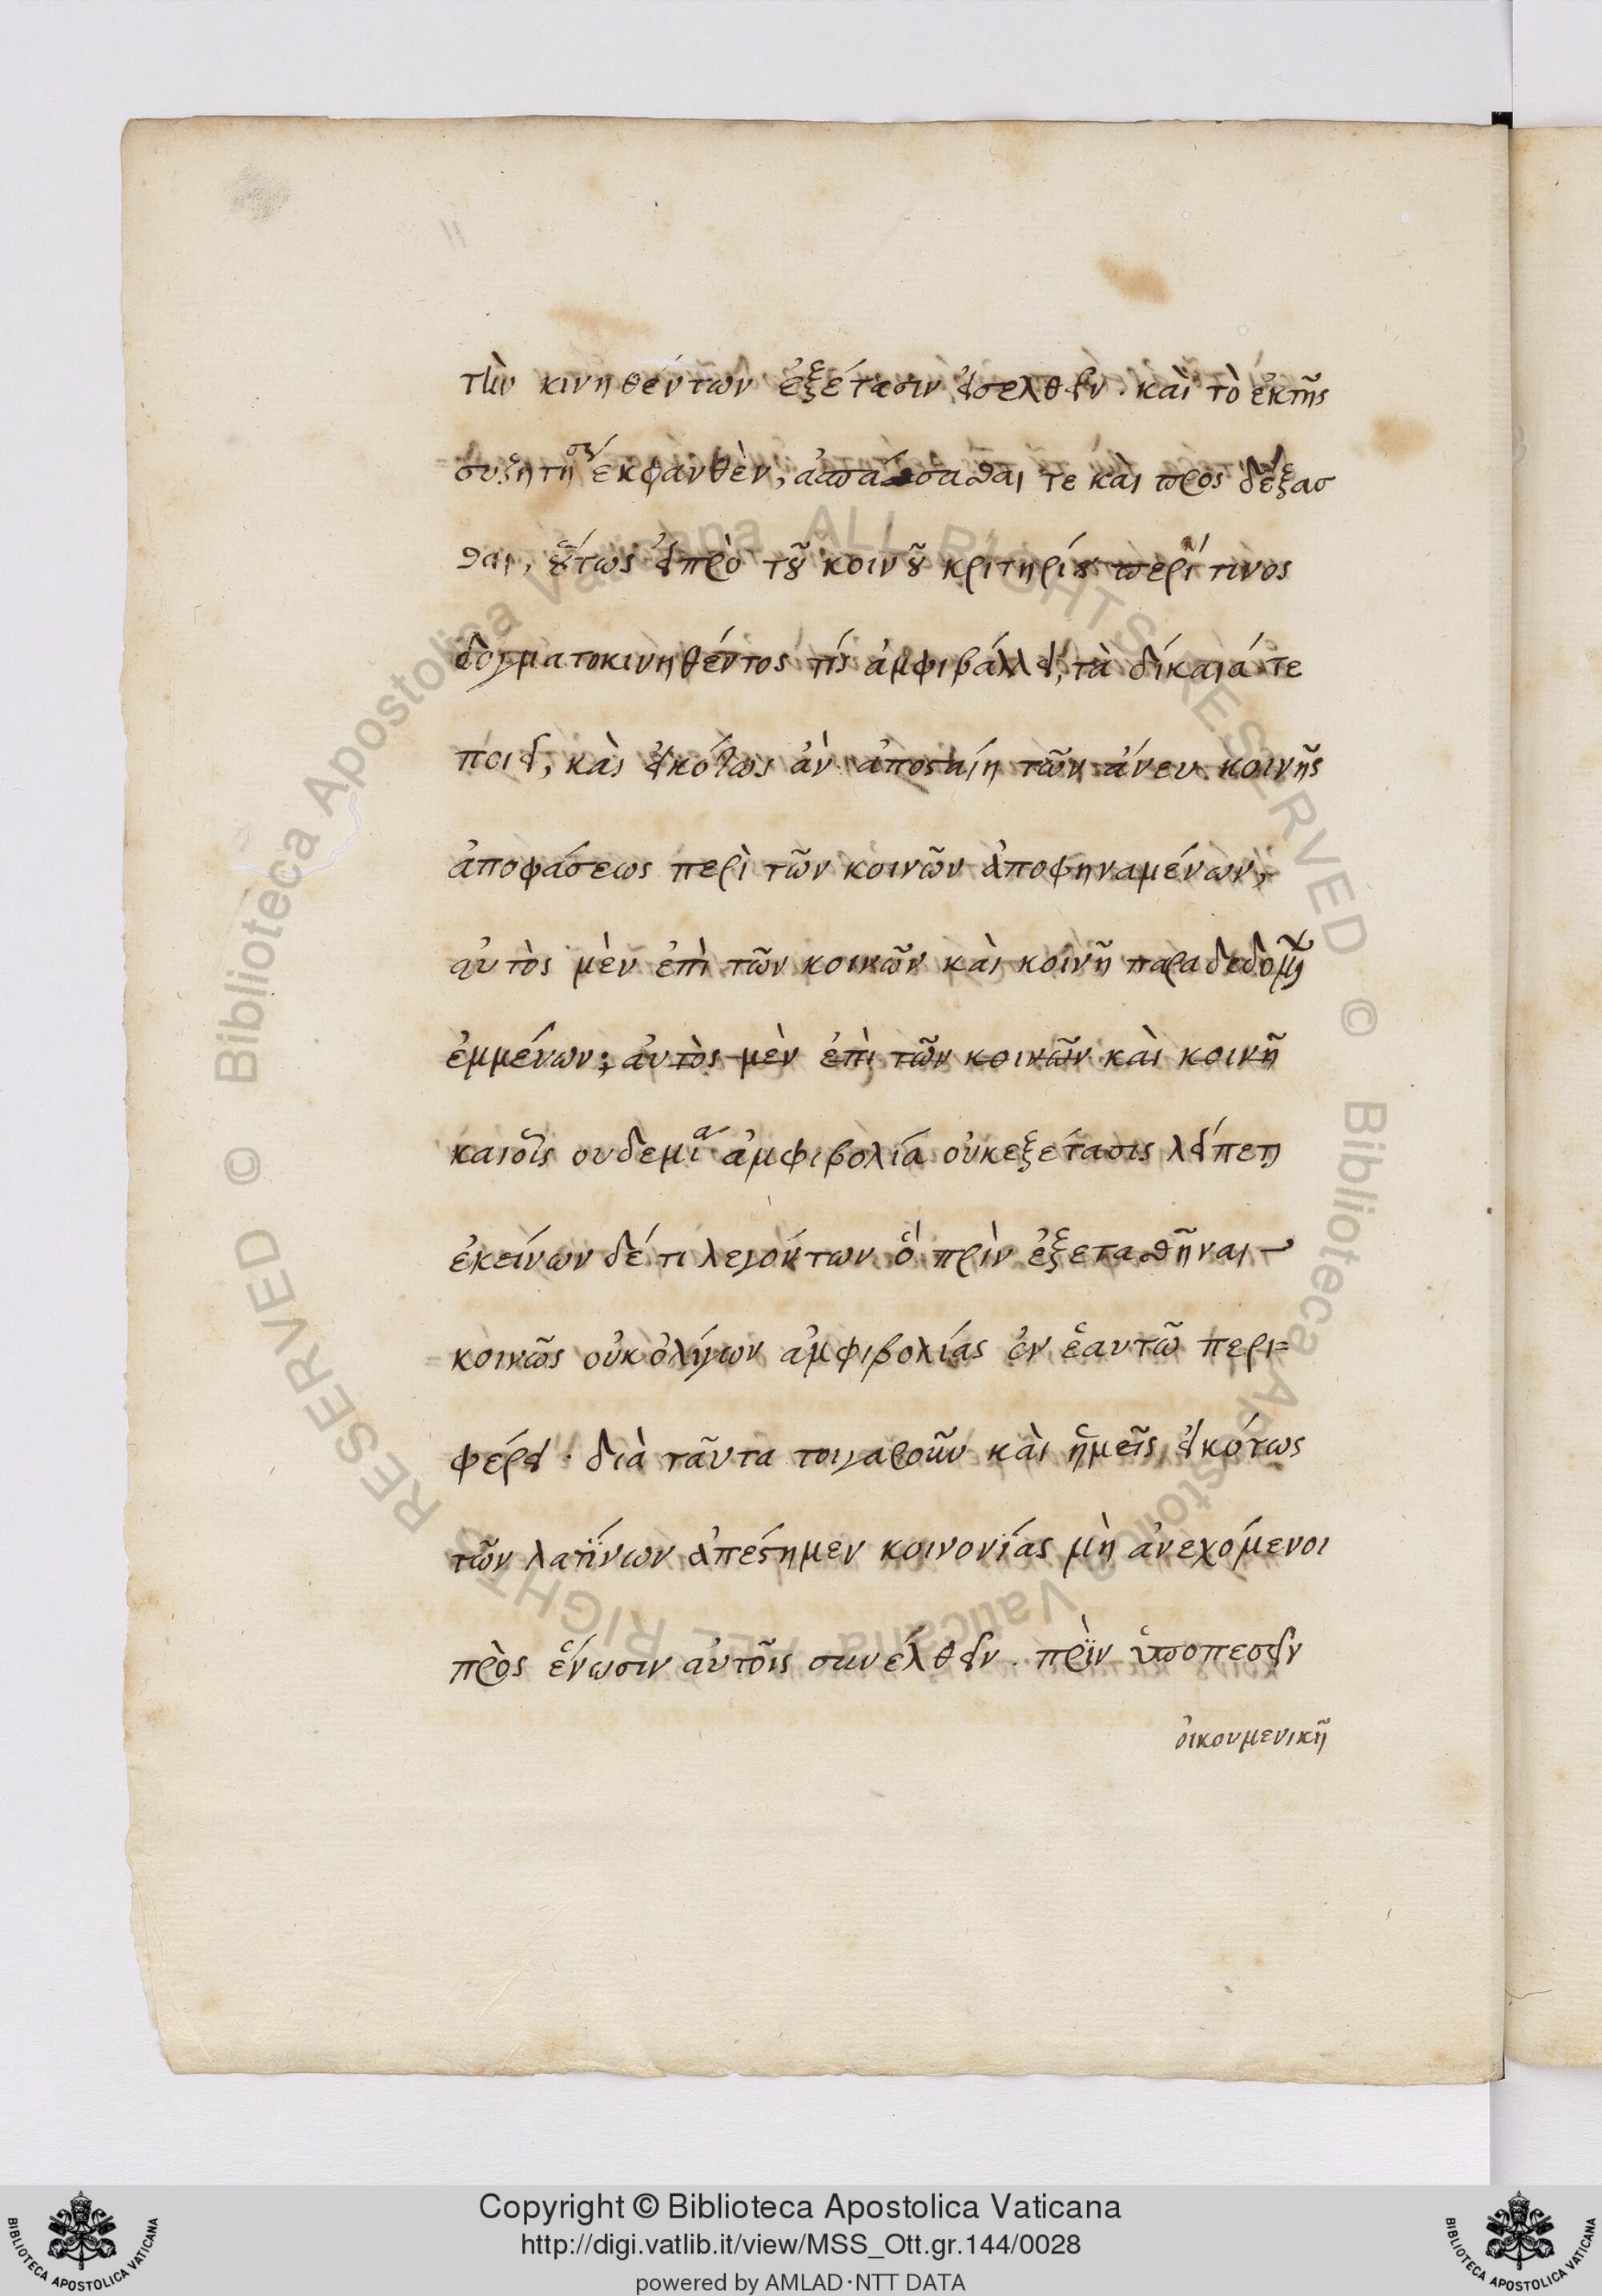 τὴν κινηθέντων ἐξέτασιν εἰσελθεῖν. καὶ τὸ ἐκτῆς
συζητήσε´ ἐκφανθὲν, ἀσπάσασθαι τε καὶ προς δέξασ
θαι, οὕτως εἰ πρὸ τοῦ κοινοῦ κριτηρίου περί τινος
δογματοκινηθέντος τίς ἀμφιβάλλει, τὰ δίκαιά τε
ποιεῖ, καὶ εἰκότως ἀν ἀποσταίη τῶν ἀνευ κοινῆς
ἀποφάσεως περὶ τῶν κοινῶν ἀποφηναμένων,
αὐτὸς μὲν ἐπὶ τῶν κοινῶν καὶ κοινῆ παραδεδομ
ἐμμένων; αὐτὸς μὲν ἐπὶ τῶν κοινῶν καὶ κοινῆ
καιοἷς ουδεμία ἀμφιβολία οὐκεξέτασις λείπεται
ἐκείνων δέ τι λεγόντων ὅ πρὶν ἐξετασθῆναι
κοινῶς οὐκὀλίγων ἀμφιβολίας ἐν ἑαυτῶ περι=
φέρει. διὰ ταῦτα τοιγαροῦν καὶ ἡμεῖς εἰκότως
τῶν λατίνων ἀπέστημεν κοινονίας μὴ ἀνεχόμενοι
πρὸς ἕνωσιν αὐτοῖς συνέλθειν. πρὶν ὑποπεσεῖν
οἰκουμενικῆ
Copyright © Biblioteca Apostolica Vaticana
http://digi.vatlib.it/view/MSS_Ott.gr.144/0028
powered by AMLAD·NTT DATA